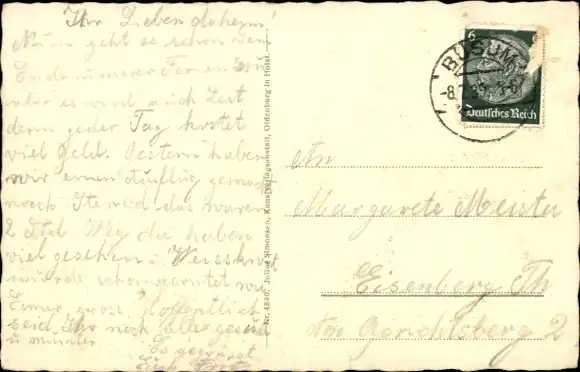 Ihr Lieben daheim!
Nun geht es schon dem
Ende unserer Ferien
aber es wird auch Zeit
denn jeder Tag kostet
viel Geld. Gestern haben
wir einen Ausflug gemacht
noch das waren
2 Std Weg da haben
viel gesehen u. Weisskraut
wurde schon geerntet wie
Eimer gross Hoffentlich
seid Ihr noch alle gesund
u munter
Es grüsst
Nr. 4330 Julius Simonsen, Kunstverlagsanstalt, Oldenburg in Holst.
BÜSUM
6
Deutsches Reich
An
Margarete
Eisenberg Th
Am Gerichtsberg 2